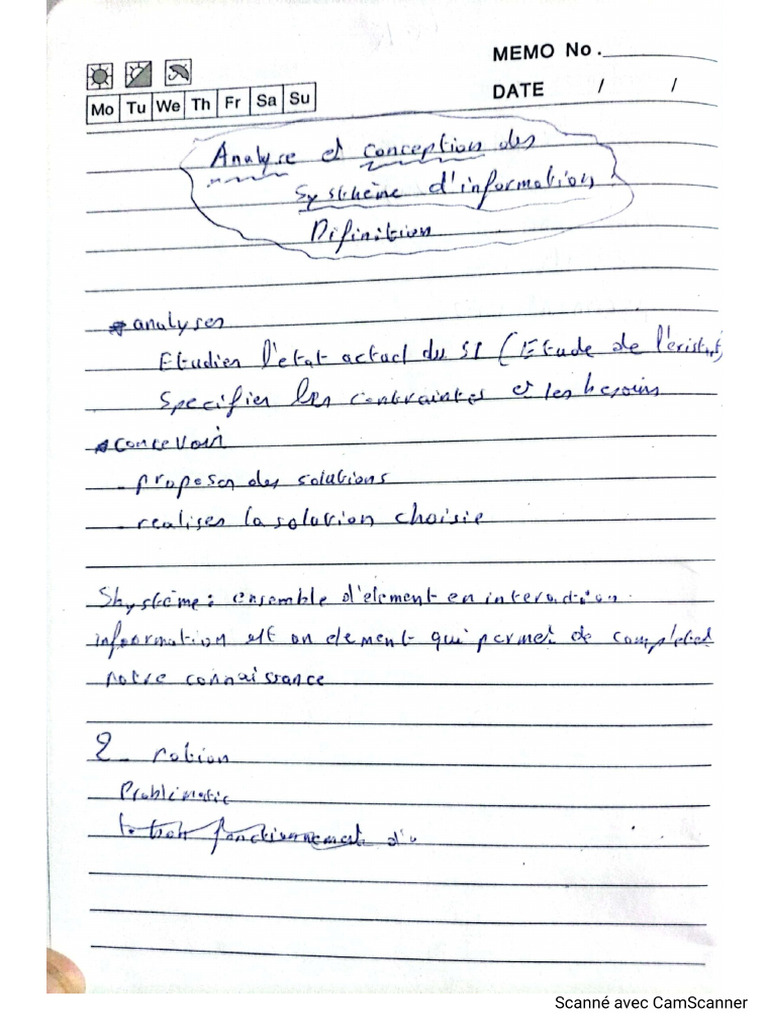 MEMO No.
DATE / /
Mo Tu We Th Fr Sa Su
Analyse et conception des
Systhème d'information
Difinition
* analyser
Etudier l'etat actuel du SI (Etude de l'existant)
Specifier les contraintes et les besoins
* concevoir
- proposer des solutions
- realiser la solution choisie
Shystème : ensemble d'element en interaction.
information est un element qui permet de
notre connaissance
2 - notion
Problèmatic
fonctionnement d'u
Scanné avec CamScanner